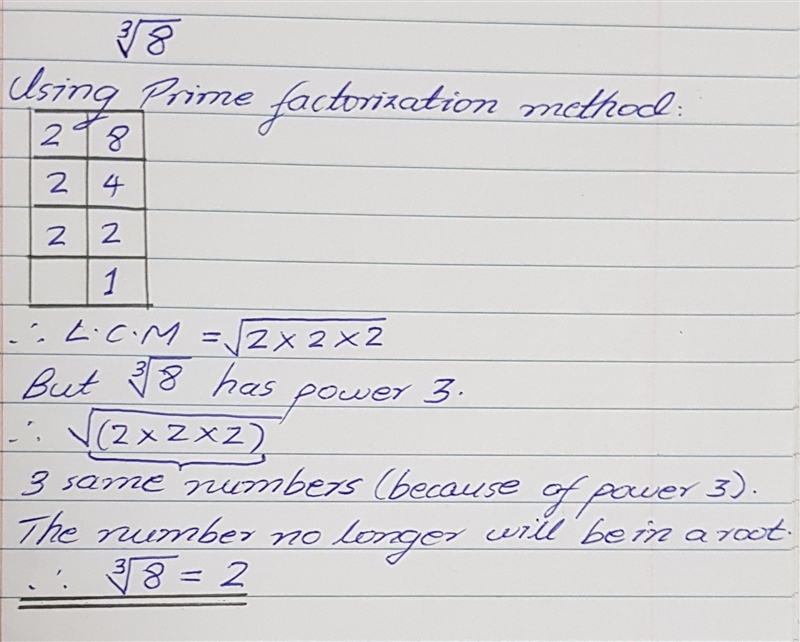 ∛8
Using Prime factorization method:
2 8
2 4
2 2
1
∴ L.C.M = √2×2×2
But ∛8 has power 3.
∴ √(2×2×2)
3 same numbers (because of power 3).
The number no longer will be in a root.
∴ ∛8 = 2